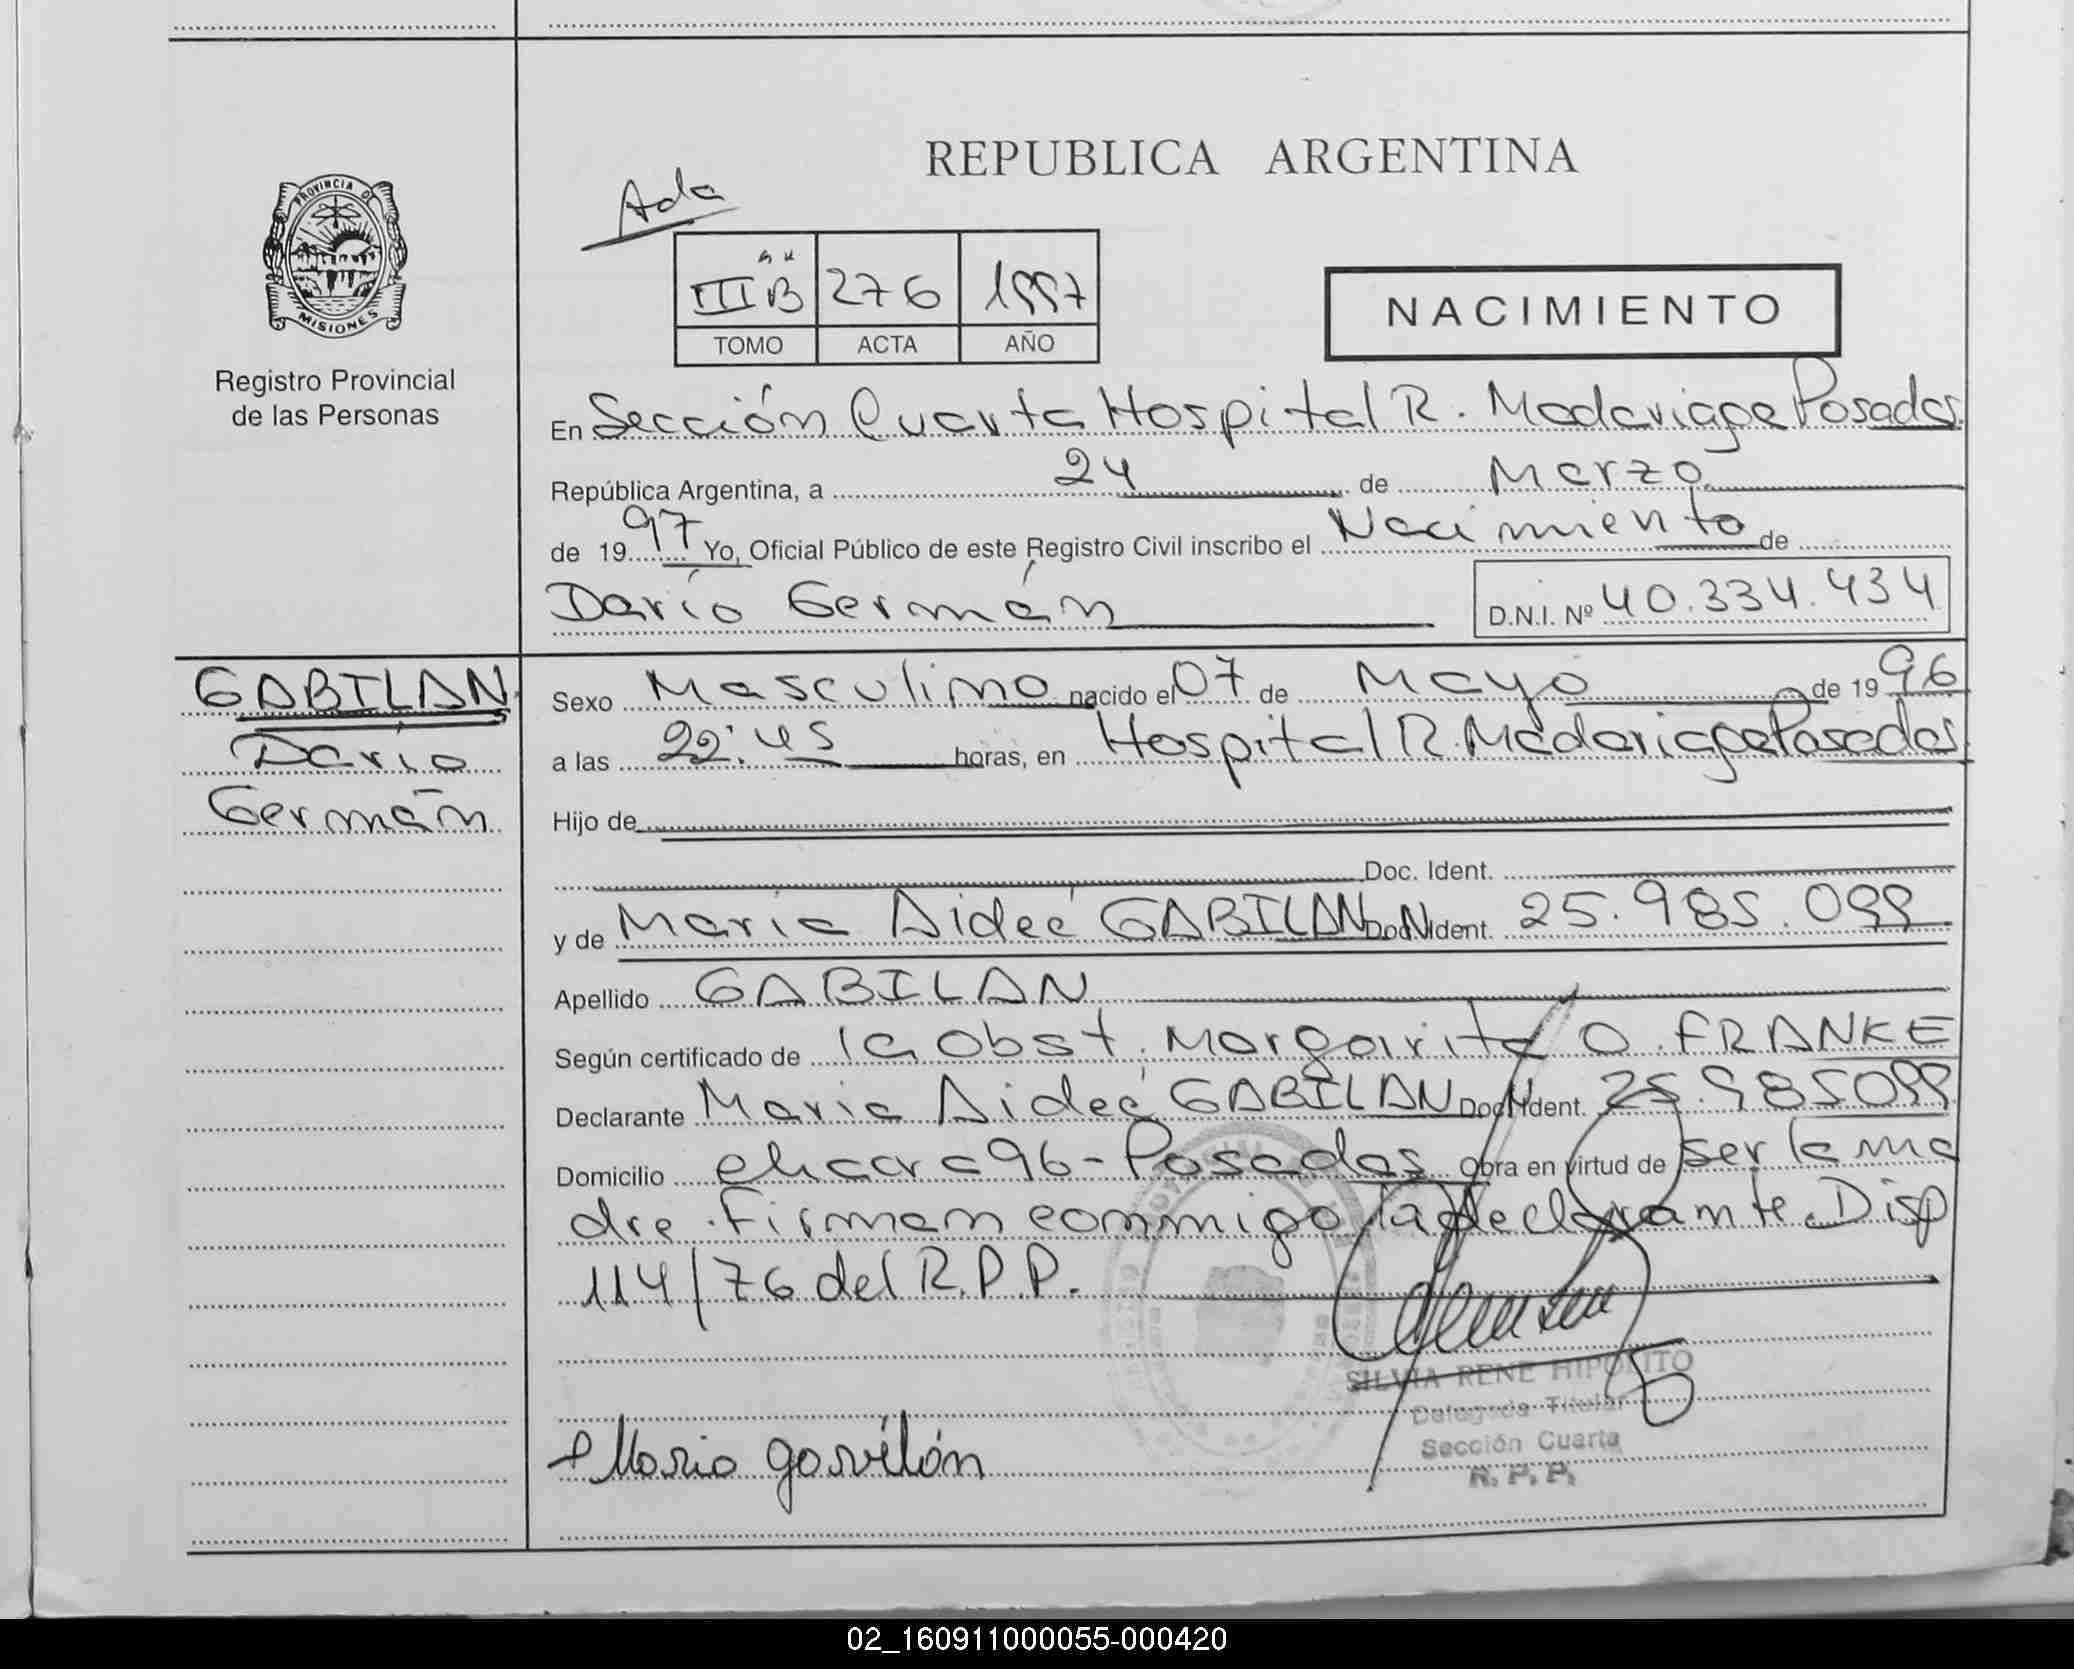 REPUBLICA ARGENTINA
PROVINCIA DE
MISIONES
Registro Provincial
de las Personas
Ada
III "B" 276 1997
TOMO ACTA AÑO
NACIMIENTO
En Sección Cuarta Hospital R. Madariaga Posadas
República Argentina, a 24 de Marzo
de 1997 Yo, Oficial Público de este Registro Civil inscribo el Nacimiento de
Darío Germán D.N.I. Nº 40.334.434
GABILAN
Darío
Germán
Sexo Masculino nacido el 07 de Mayo de 1996
a las 22:45 horas, en Hospital R. Madariaga Posadas
Hijo de
Doc. Ident.
y de María Aideé GABILAN Doc. Ident. 25.985.099
Apellido GABILAN
Según certificado de la Obst. Margarita O. FRANKE
Declarante María Aideé GABILAN Doc. Ident. 25.985099
Domicilio chacra 96 - Posadas Obra en virtud de ser la ma
dre. Firman conmigo la declarante. Disp
114/76 del R.P.P.
SILVIA RENE HIPOLITO
Delegada Titular
Sección Cuarta
R. P. P.
Maria gavilán
02_160911000055-000420